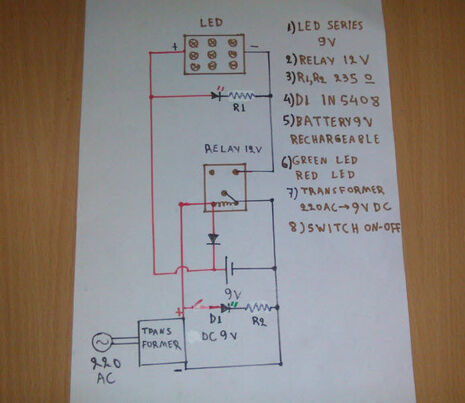 LED
+ -
R1
RELAY 12V
9V
+
D1
R2
DC 9V
TRANS
FORMER
220
AC
-
1) LED SERIES
9V
2) RELAY 12V
3) R1,R2 235 Ω
4) D1 IN5408
5) BATTERY 9V
RECHARGEABLE
6) GREEN LED
RED LED
7) TRANSFORMER
220AC → 9V DC
8) SWITCH ON-OFF